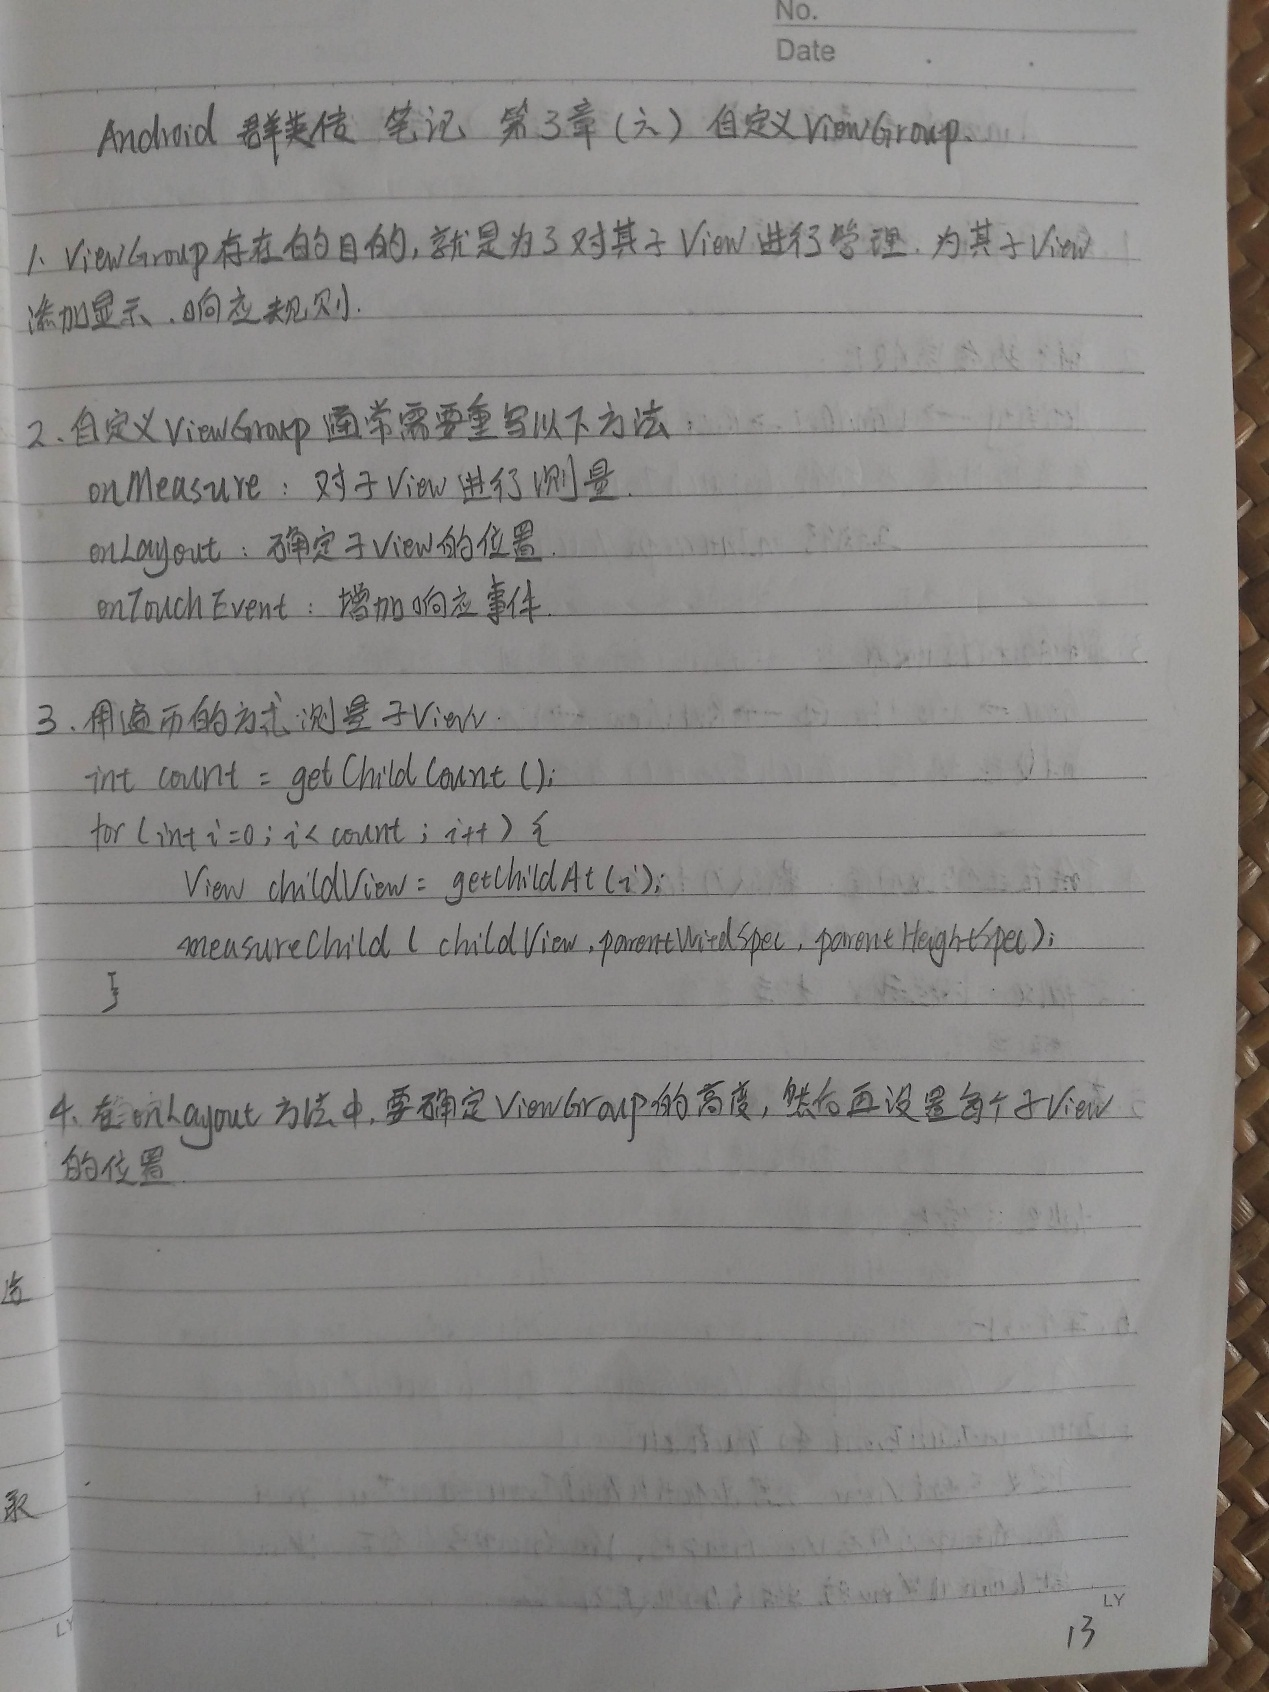 No.
Date
Android 群英传 笔记 第3章(六) 自定义ViewGroup.
1、ViewGroup存在的目的,就是为了对其子View进行管理.为其子View
添加显示、响应规则.
2、自定义ViewGroup通常需要重写以下方法:
onMeasure: 对子View进行测量.
onLayout: 确定子View的位置.
onTouchEvent: 增加响应事件.
3、用遍历的方式测量子View.
int count = getChildCount();
for(int i=0; i< count; i++) {
View childView = getChildAt(i);
measureChild( childView, parentWitdSpec, parentHeightSpec);
}
4、在onLayout方法中,要确定ViewGroup的高度,然后再设置每个子View
的位置.
取
LY
LY
13